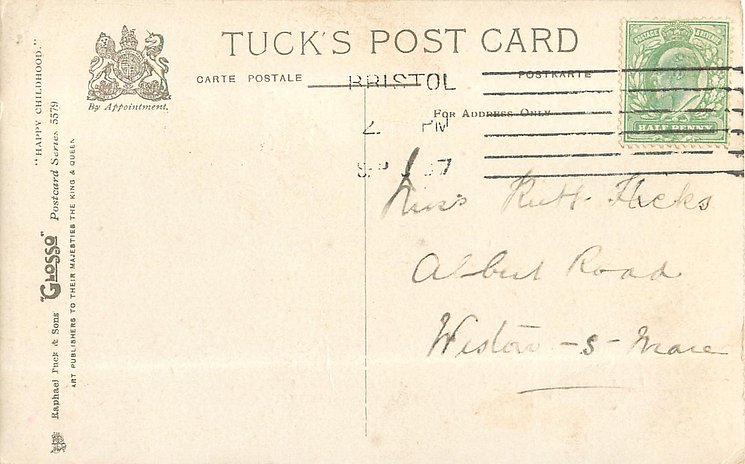 TUCK'S POST CARD
CARTE POSTALE
POSTKARTE
By Appointment.
BRISTOL
PM
FOR ADDRESS ONLY
POSTAGE
HALF PENNY
Miss Ruth Hicks
Albert Road
Weston-S-Mare
"HAPPY CHILDHOOD."
Raphael Tuck & Sons "GLOSSO" Postcard Series 5579
ART PUBLISHERS TO THEIR MAJESTIES THE KING & QUEEN